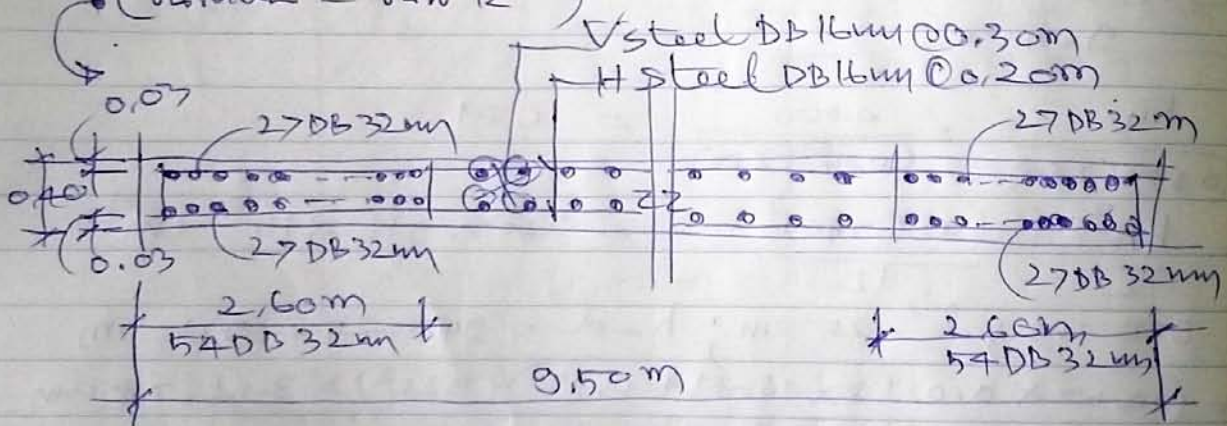 V steel DB 16mm @ 0.30m
H Steel DB 16mm @ 0.20m
0.03
27 DB 32mm
27 DB 32m
0.40
0.03
27 DB 32mm
27 DB 32mm
2.60m
54 DB 32mm
2.60m
54 DB 32mm
9.50m